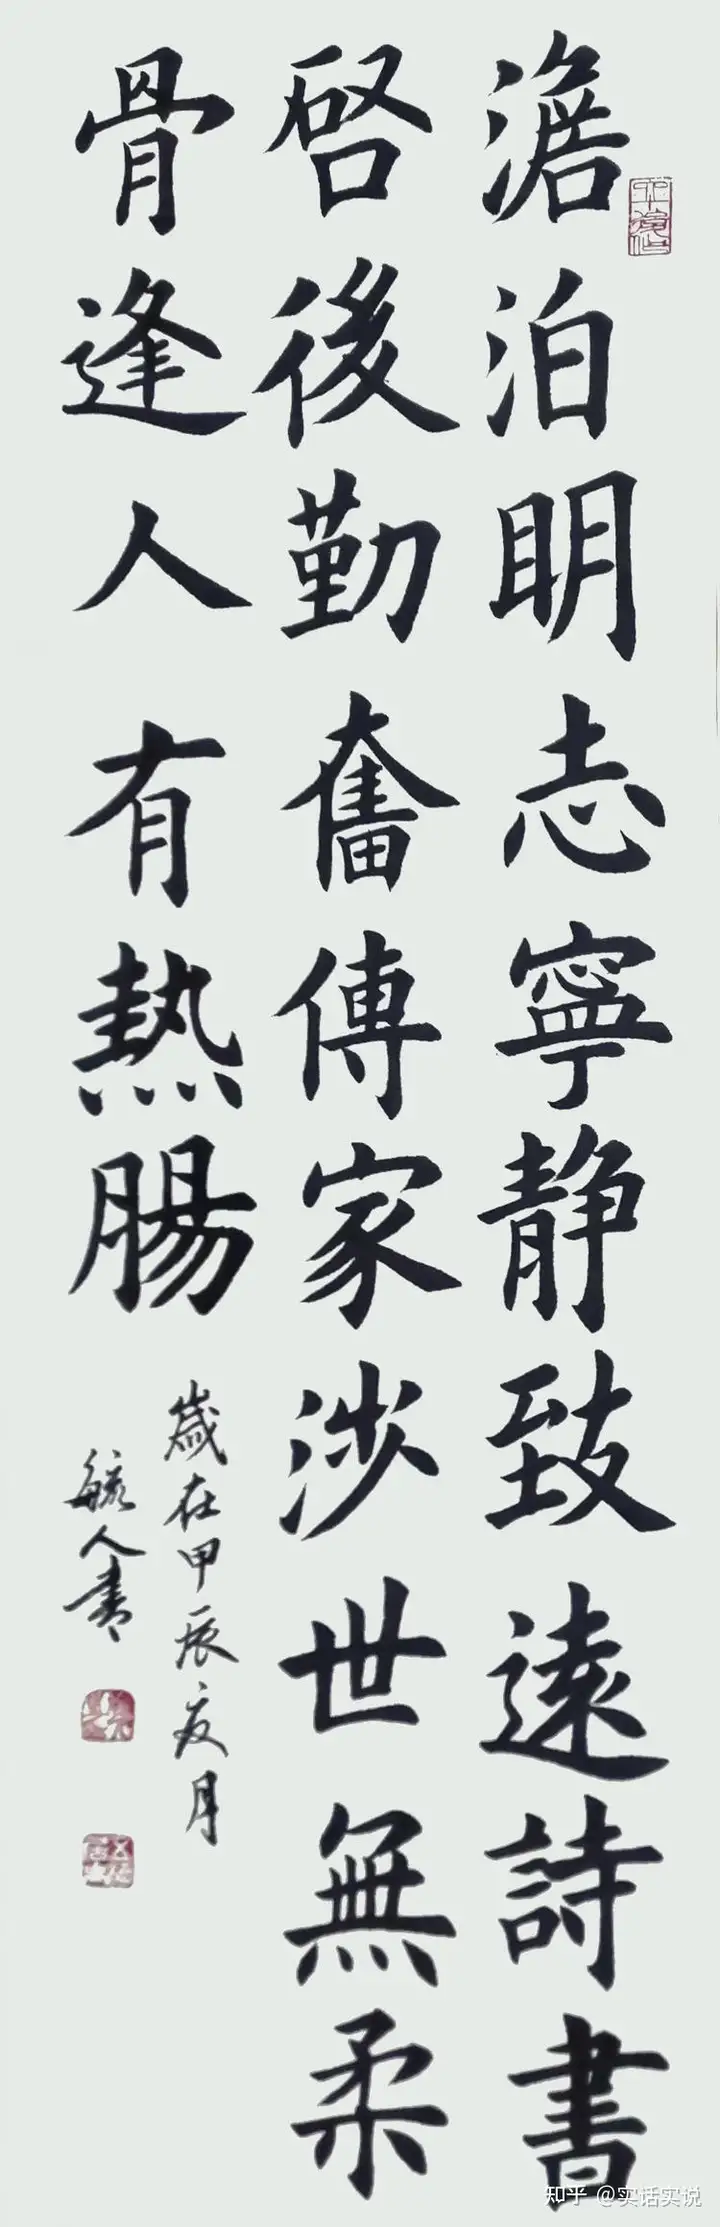 澹泊明志寧靜致遠詩書
啓後勤奮傳家涉世無柔
骨逢人有熱腸
歲在甲辰夏月
毓人書
知乎 @实话实说